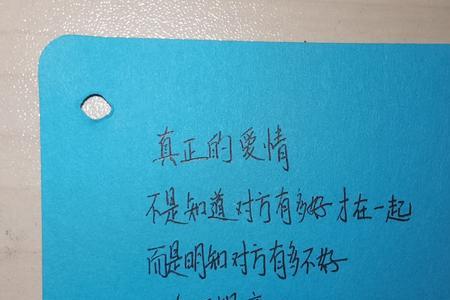 真正的爱情
不是知道对方有多好才在一起
而是明知对方有多不好